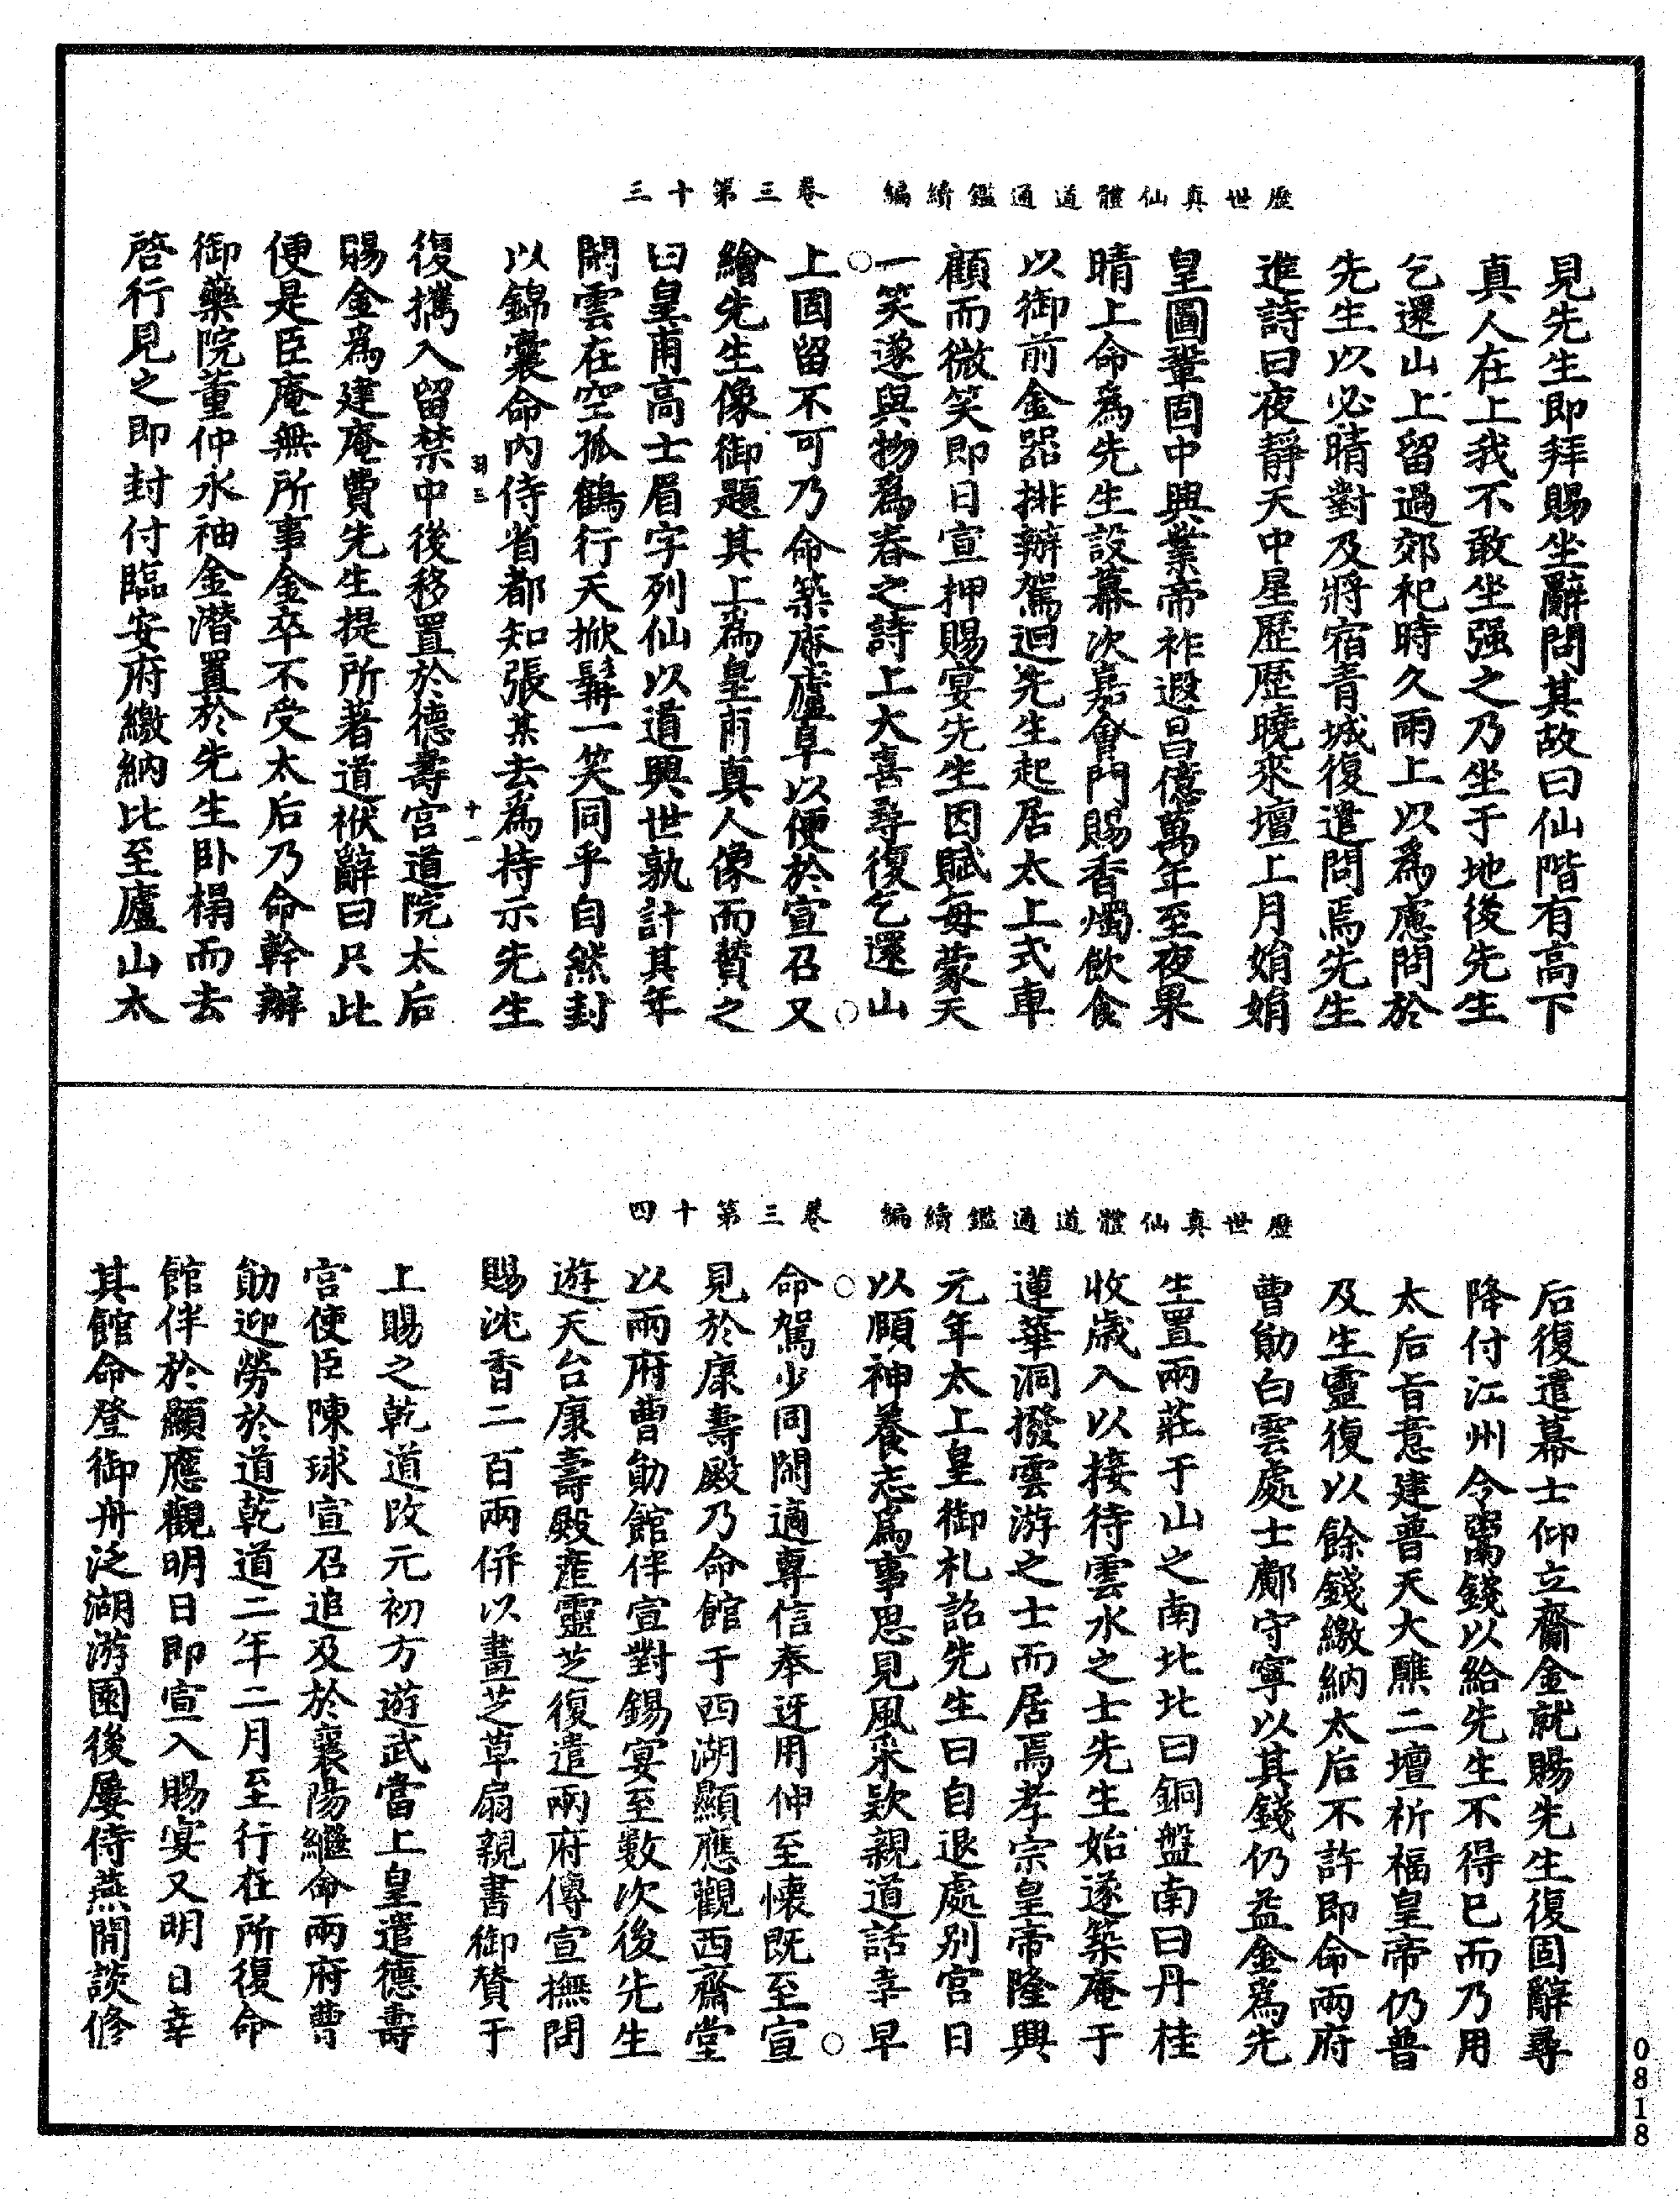 歷世真仙體道通鑑續編　卷三第十三
見先生即拜賜坐辭問其故曰仙階有高下
真人在上我不敢坐强之乃坐于地後先生
乞還山上留過郊祀時久雨上以爲慮問於
先生以必晴對及將宿青城復遣問焉先生
進詩曰夜靜天中星歷歷曉來壇上月娟娟
皇圖鞏固中興業帝祚遐昌億萬年至夜果
晴上命爲先生設幕次嘉會門賜香燭飲食
以御前金器排辦駕迴先生起居太上式車
顧而微笑即日宣押賜宴先生因賦每蒙天
一笑遂與物爲春之詩上大喜尋復乞還山
上固留不可乃命築庵廬阜以便於宣召又
繪先生像御題其上爲皇甫真人像而贊之
曰皇甫高士眉宇列仙以道興世孰計其年
閑雲在空孤鶴行天掀髯一笑同乎自然封
以錦囊命内侍省都知張某去爲持示先生
羽三　十一
復攜入留禁中後移置於德壽宮道院太后
賜金爲建庵費先生提所著道袱辭曰只此
便是臣庵無所事金卒不受太后乃命幹辦
御藥院董仲永袖金潛置於先生卧榻而去
啓行見之即封付臨安府繳納比至廬山太
歷世真仙體道通鑑續編　卷三第十四
后復遣幕士仰立齎金就賜先生復固辭尋
降付江州令鬻錢以給先生不得已而乃用
太后旨意建普天大醮二壇祈福皇帝仍普
及生靈復以餘錢繳納太后不許即命兩府
曹勛白雲處士鄺守寧以其錢仍益金爲先
生置兩莊于山之南北北曰銅盤南曰丹桂
收歲入以接待雲水之士先生始遂築庵于
蓮華洞撥雲游之士而居焉孝宗皇帝隆興
元年太上皇御札詔先生曰自退處別宮日
以頤神養志爲事思見風采欵親道話幸早
命駕少同閑適專信奉迓用伸至懷既至宣
見於康壽殿乃命館于西湖顯應觀西齋堂
以兩府曹勛館伴宣對錫宴至數次後先生
遊天台康壽殿産靈芝復遣兩府傳宣撫問
賜沈香二百兩併以畫芝草扇親書御贊于
上賜之乾道改元初方遊武當上皇遣德壽
宮使臣陳球宣召追及於襄陽繼命兩府曹
勛迎勞於道乾道二年二月至行在所復命
館伴於顯應觀明日即宣入賜宴又明日幸
其館命登御舟泛湖游園後屢侍燕閒談修
0818